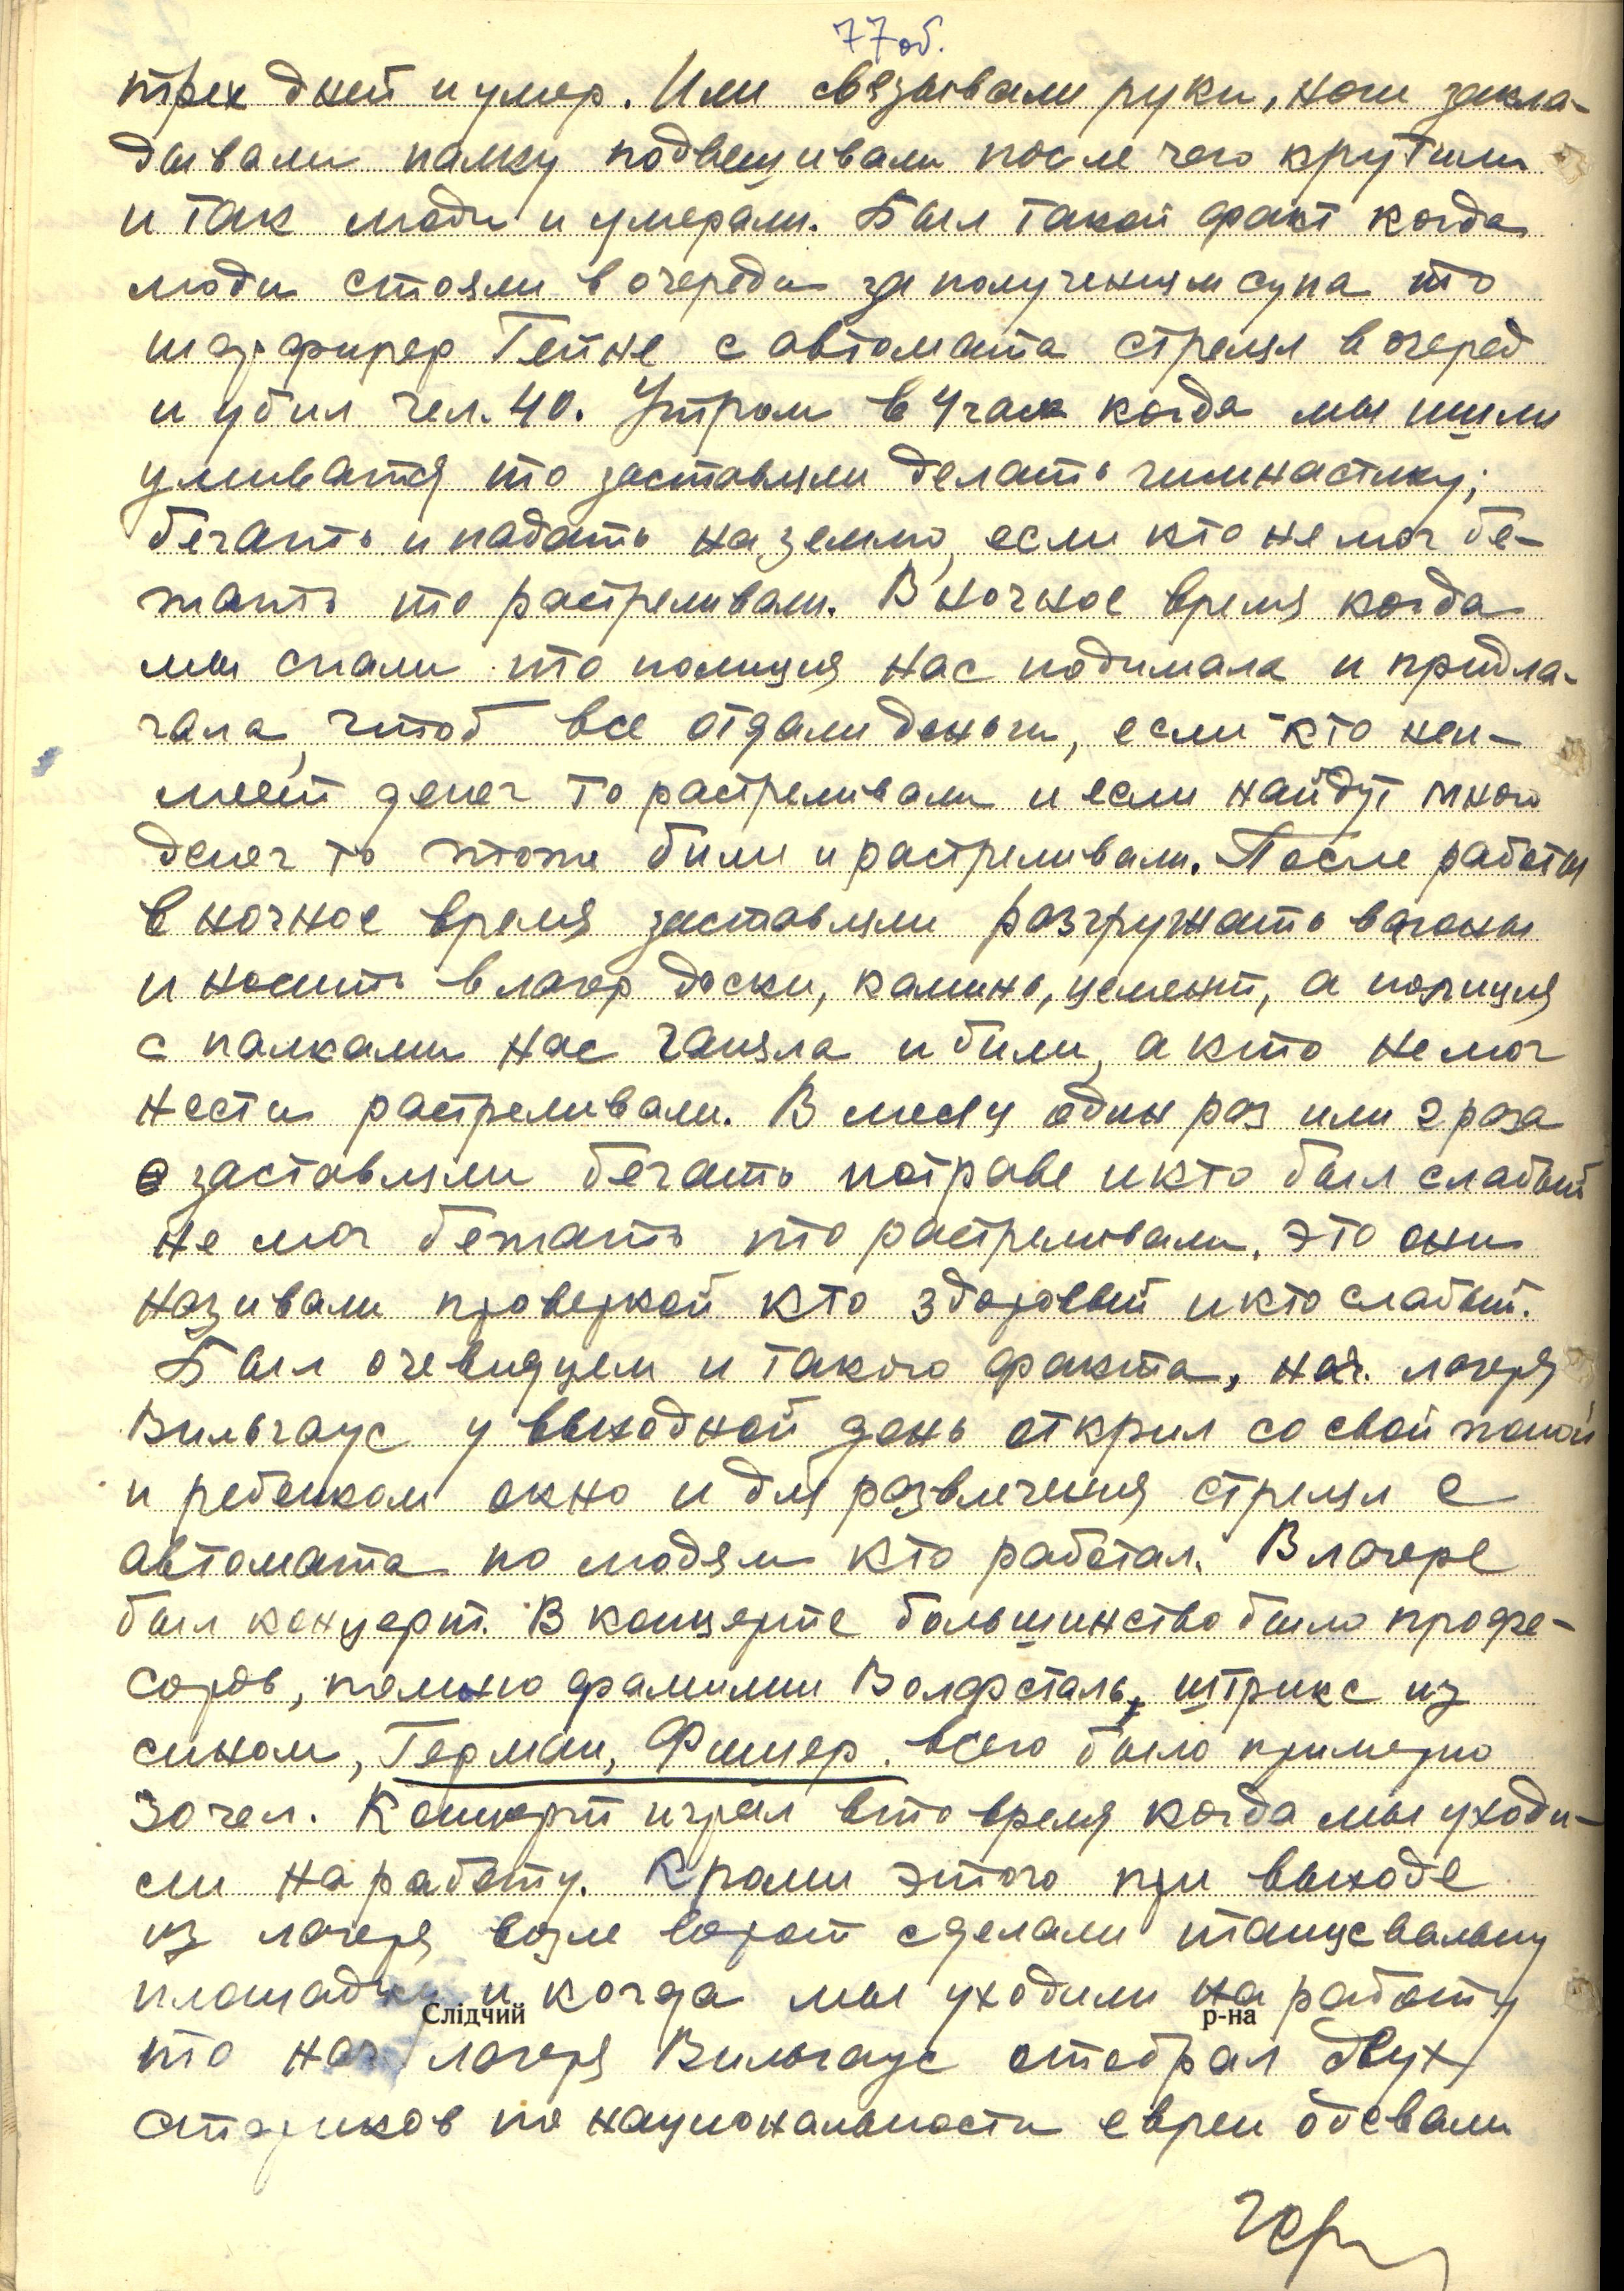 77об.
трех дней и умер. Или связывали руки, ноги закла-
дывали палку подвешивали после чего крутили
и так люди и умерали. Был такой факт когда
люди стояли в очереди за получениям супа то
шарфирер Гейне с автомата стрелял в очеред
и убил чел. 40. Утром в 4 часа когда мы шли
умиватся то заставляли делать гимнастику;
бегать и падать на землю, если кто не мог бе-
жать то растреливали. В ночное время когда
мы спали то полиция нас подимала и придла-
гала, чтоб все отдали деньги, если кто неи-
меет денег то растреливали и если найдут много
денег то тоже били и растреливали. После работы
в ночное время заставляли разгружать вагоны
и носить в лагер доски, каминь, цемент, а полиция
с палками нас ганяла и били, а кто не мог
нести растреливали. В месяц один раз или 2 раза
заставляли бегать потраве и кто был слабый
не мог бежать то растреливали, это они
називали проверкой кто здоровый и кто слабый.
Был очевидцем и такого факта, нач. лагеря
Вильгаус у выходной день открил со свой женой
и ребенком окно и для развлечения стрелял с
автомата по людям кто работал. В лагере
был концерт. В концерте большинство было профе-
соров, помню фамилии Волфсталь, штрикс из
сином, Герман, Фишер. всего было примерно
30 чел. Концерт играл вто время когда мы уходи-
ли на работу. Кроми этого при выходе
из лагеря возле ворот сделали танцевальну
площадку и когда мы уходили на работу
Слідчий р-на
то нач. лагеря Вильгаус отобрал двух
стариков по национальности евреи одевали